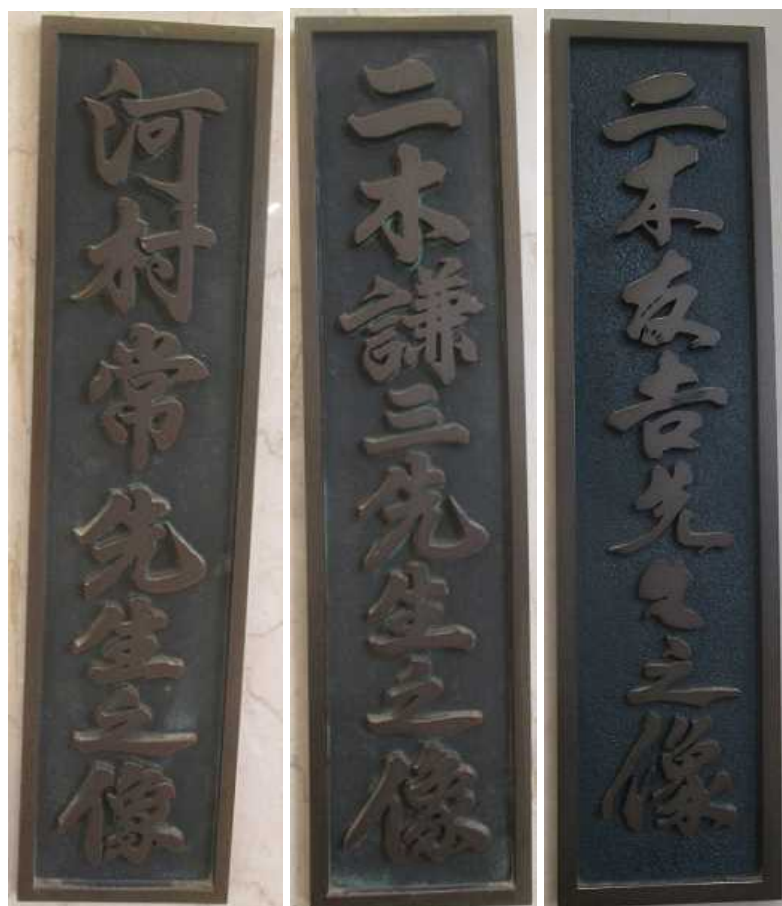 河村常先生之像
二木謙三先生之像
二木友吉先生之像